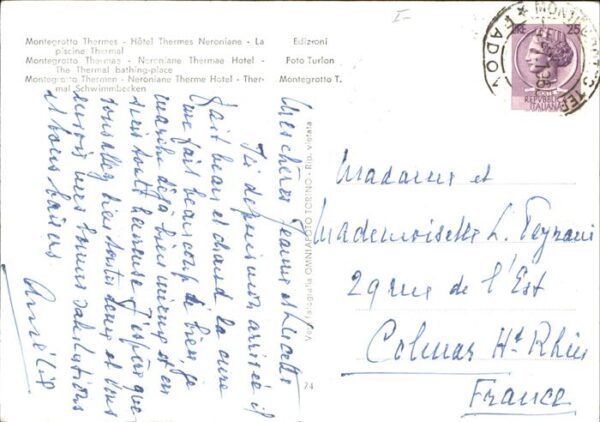 Montegrotto Thermes - Hôtel Thermes Neroniane - La
piscine Thermal
Montegrotto Thermae - Neroniane Thermae Hotel -
The Thermal bathing-place
Montegrotto Thermen - Neroniane Therme Hotel - Ther-
mal Schwimmbecken
Edizioni
Foto Turlon
Montegrotto T.
LIRE 25
REPVBBLICA
ITALIANA
PADOVA
Mes chères Jeanne et Lucette
Ici depuis mon arrivée il
fait beau et chaud la cure
me fait beaucoup de bien, je
marche déjà bien mieux et en
suis toute heureuse J'espère que
vous allez bien toutes deux et vous
envois mes bonnes salutations
et bons baisers
Amélie
Fotografia OMNIAFOTO TORINO - Rip. vietata
74
Madame et
Mademoiselle L.
29 rue de l'Est
Colmar Ht Rhin
France